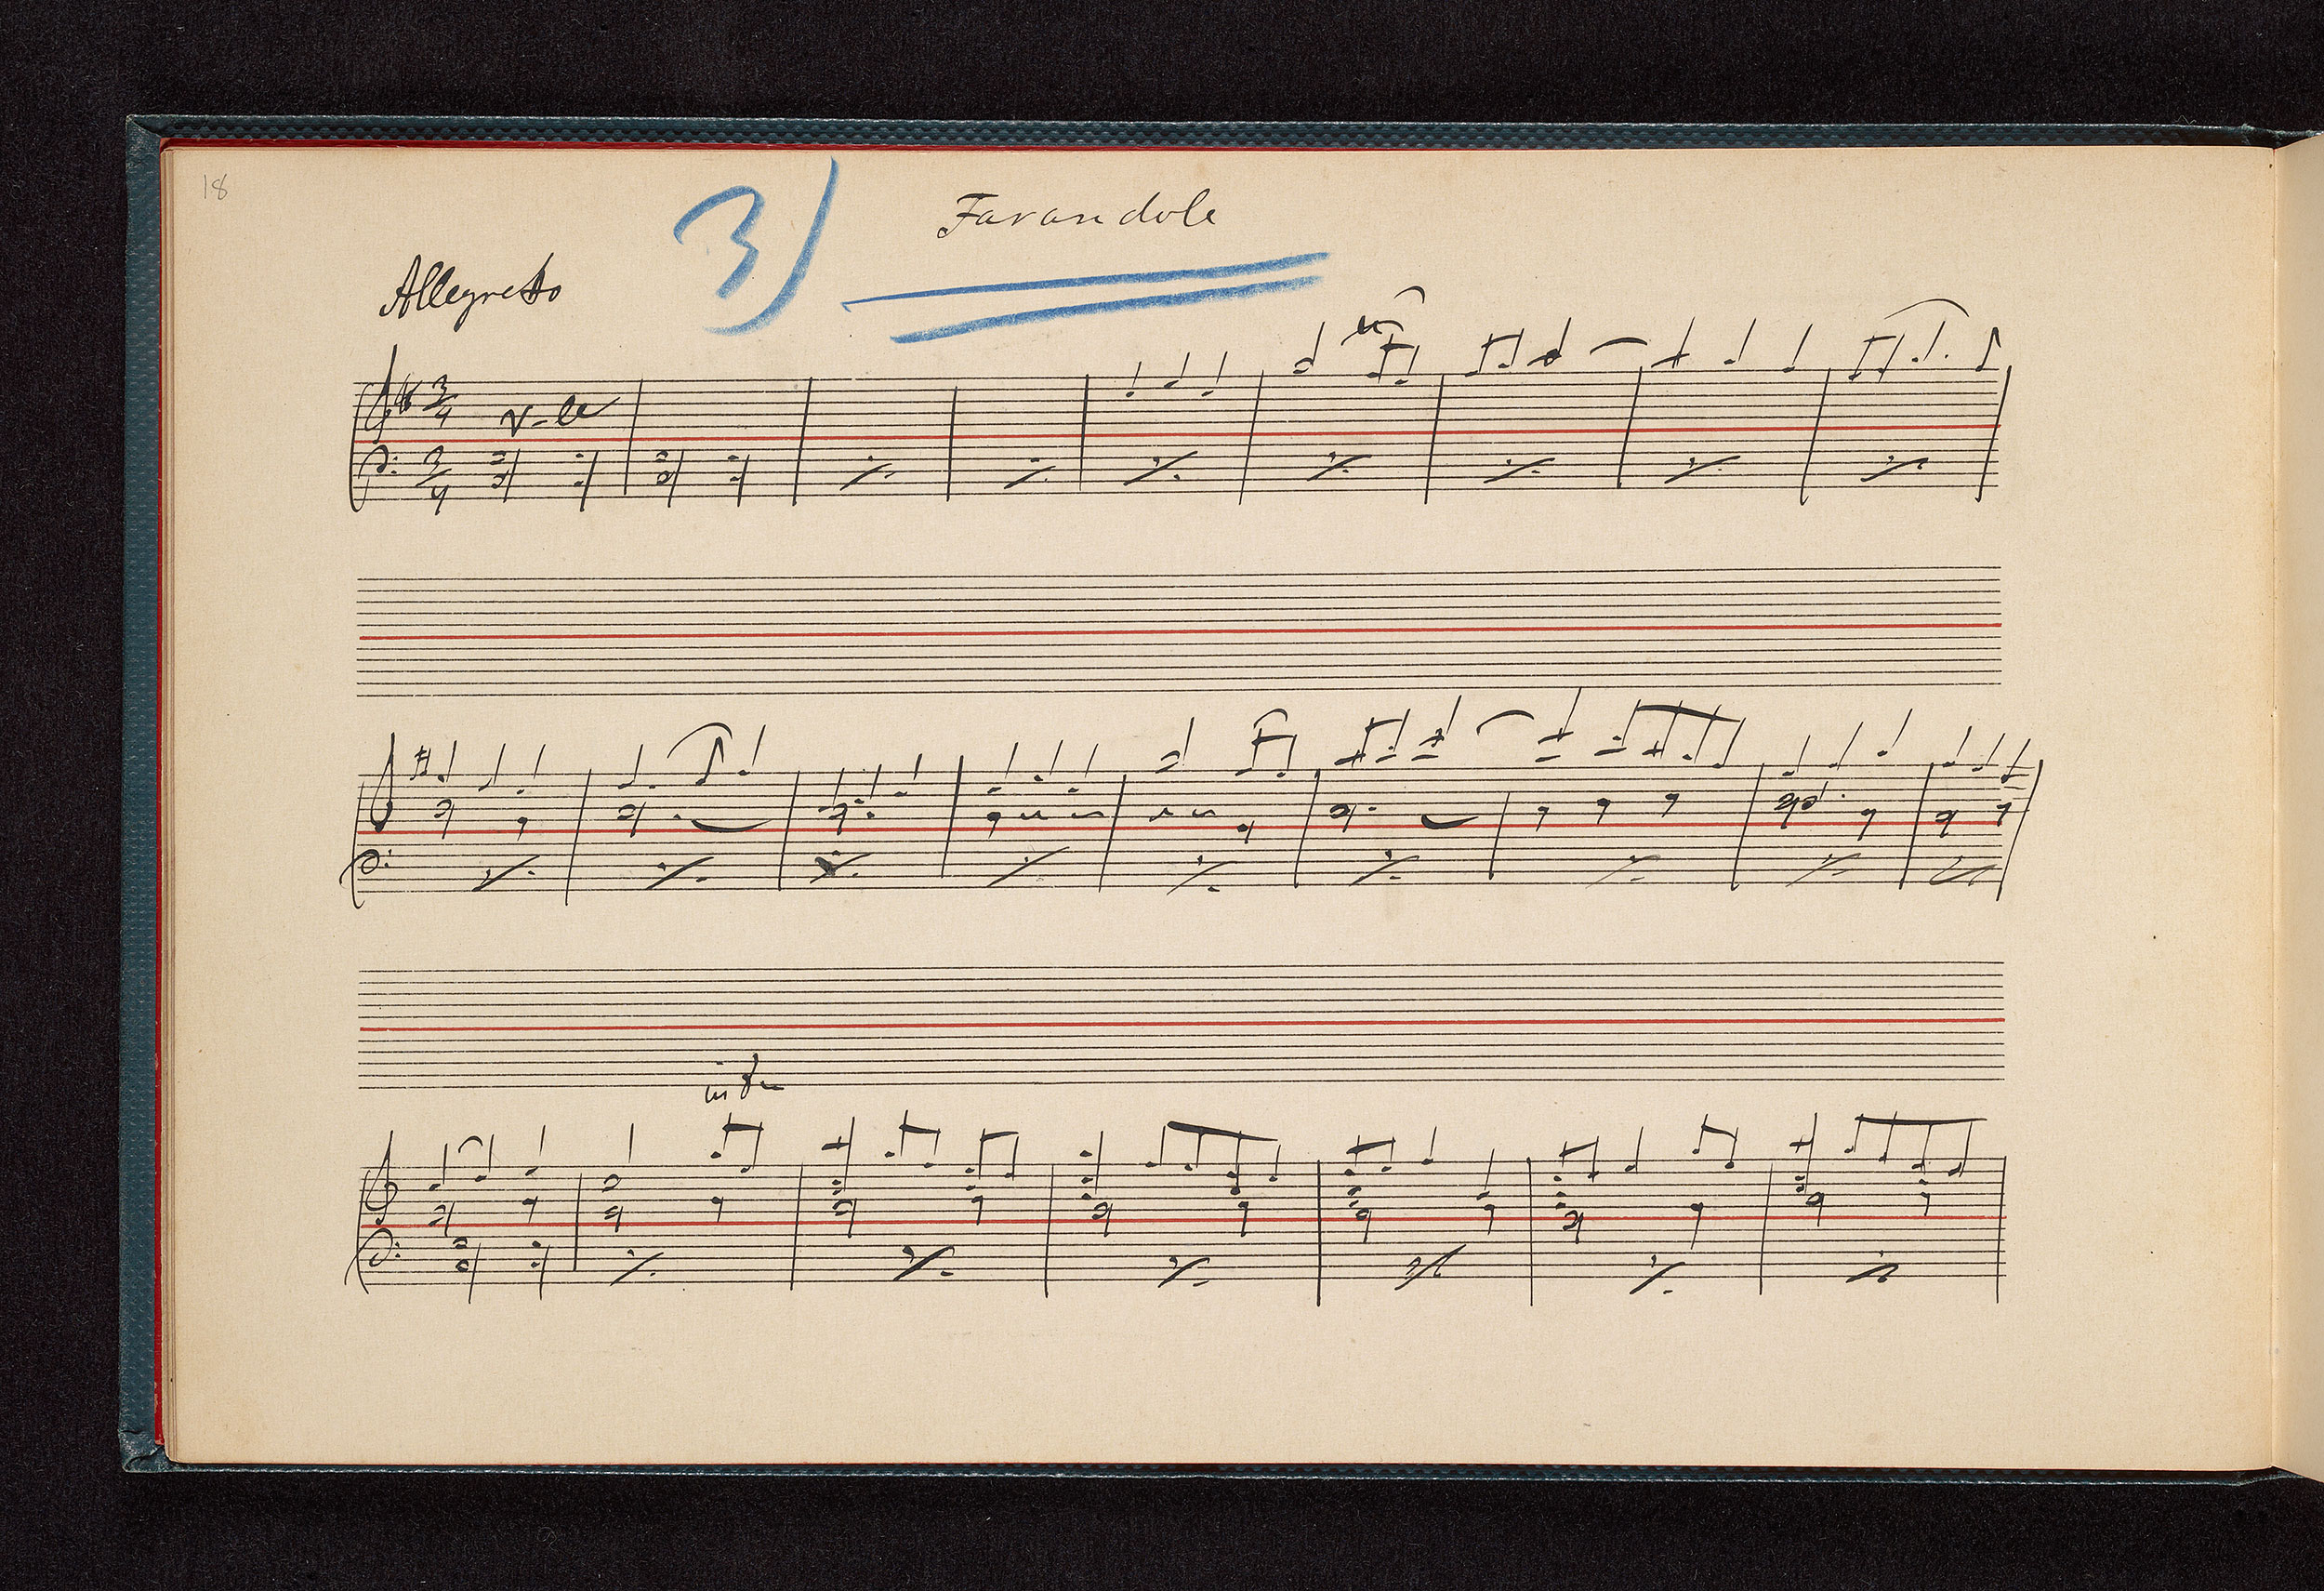 18
3) Farandole
Allegretto
3
4
3
4
in 8va